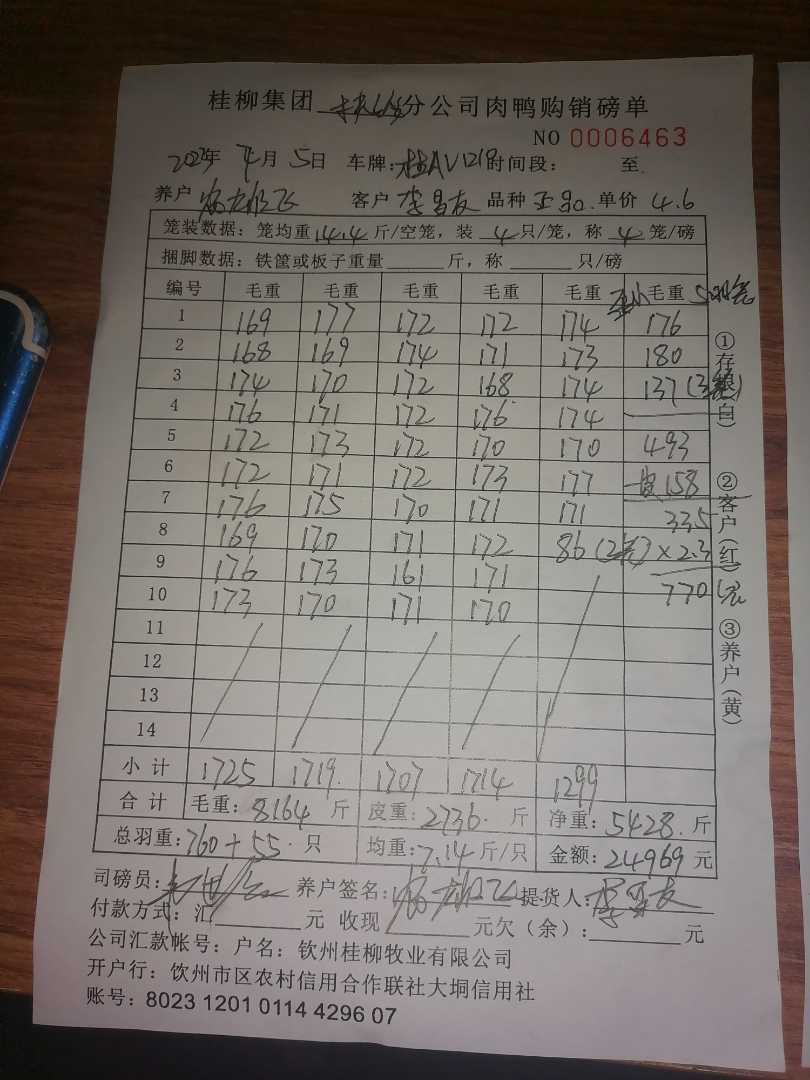 桂柳集团 分公司肉鸭购销磅单
NO 0006463
2023年 4月 5日 车牌: 桂AV1218 时间段: 至.
养户 客户 李昌友 品种 单价 4.6
笼装数据: 笼均重 14.4 斤/空笼, 装 4 只/笼, 称 4 笼/磅
捆脚数据: 铁筐或板子重量 斤, 称 只/磅
编号 毛重 毛重 毛重 毛重 毛重 毛重
1 169 177 172 172 174 176
2 168 169 174 171 173 180
3 174 170 172 168 174 137
4 176 171 172 176 174
5 172 173 172 170 170 493
6 172 171 172 173 177 158
7 176 175 170 171 171 335
8 169 170 171 172 86 × 2.3
9 176 173 161 171 770
10 173 170 171 170
11
12
13
14
小计 1725 1719 1707 1714 1299
合计 毛重: 8164 斤 皮重: 2736 斤 净重: 5428 斤
总羽重: 760+55 只 均重: 7.14 斤/只 金额: 24969 元
司磅员: 养户签名: 提货人: 李昌友
付款方式: 汇 元 收现 元欠(余): 元
公司汇款帐号: 户名: 钦州桂柳牧业有限公司
开户行: 钦州市区农村信用合作联社大垌信用社
账号: 8023 1201 0114 4296 07
①存根(白)
②客户(红)
③养户(黄)